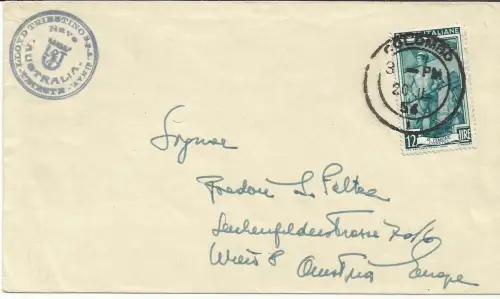 LLOYD TRIESTINO S.P.A. DI NAV.
TRIESTE
Nave
AUSTRALIA
COLOMBO
3 -PM
20
54
ITALIANE
12 LIRE
Signor
Lerchenfelderstrasse 70/6
Wien 8 Austria Europe